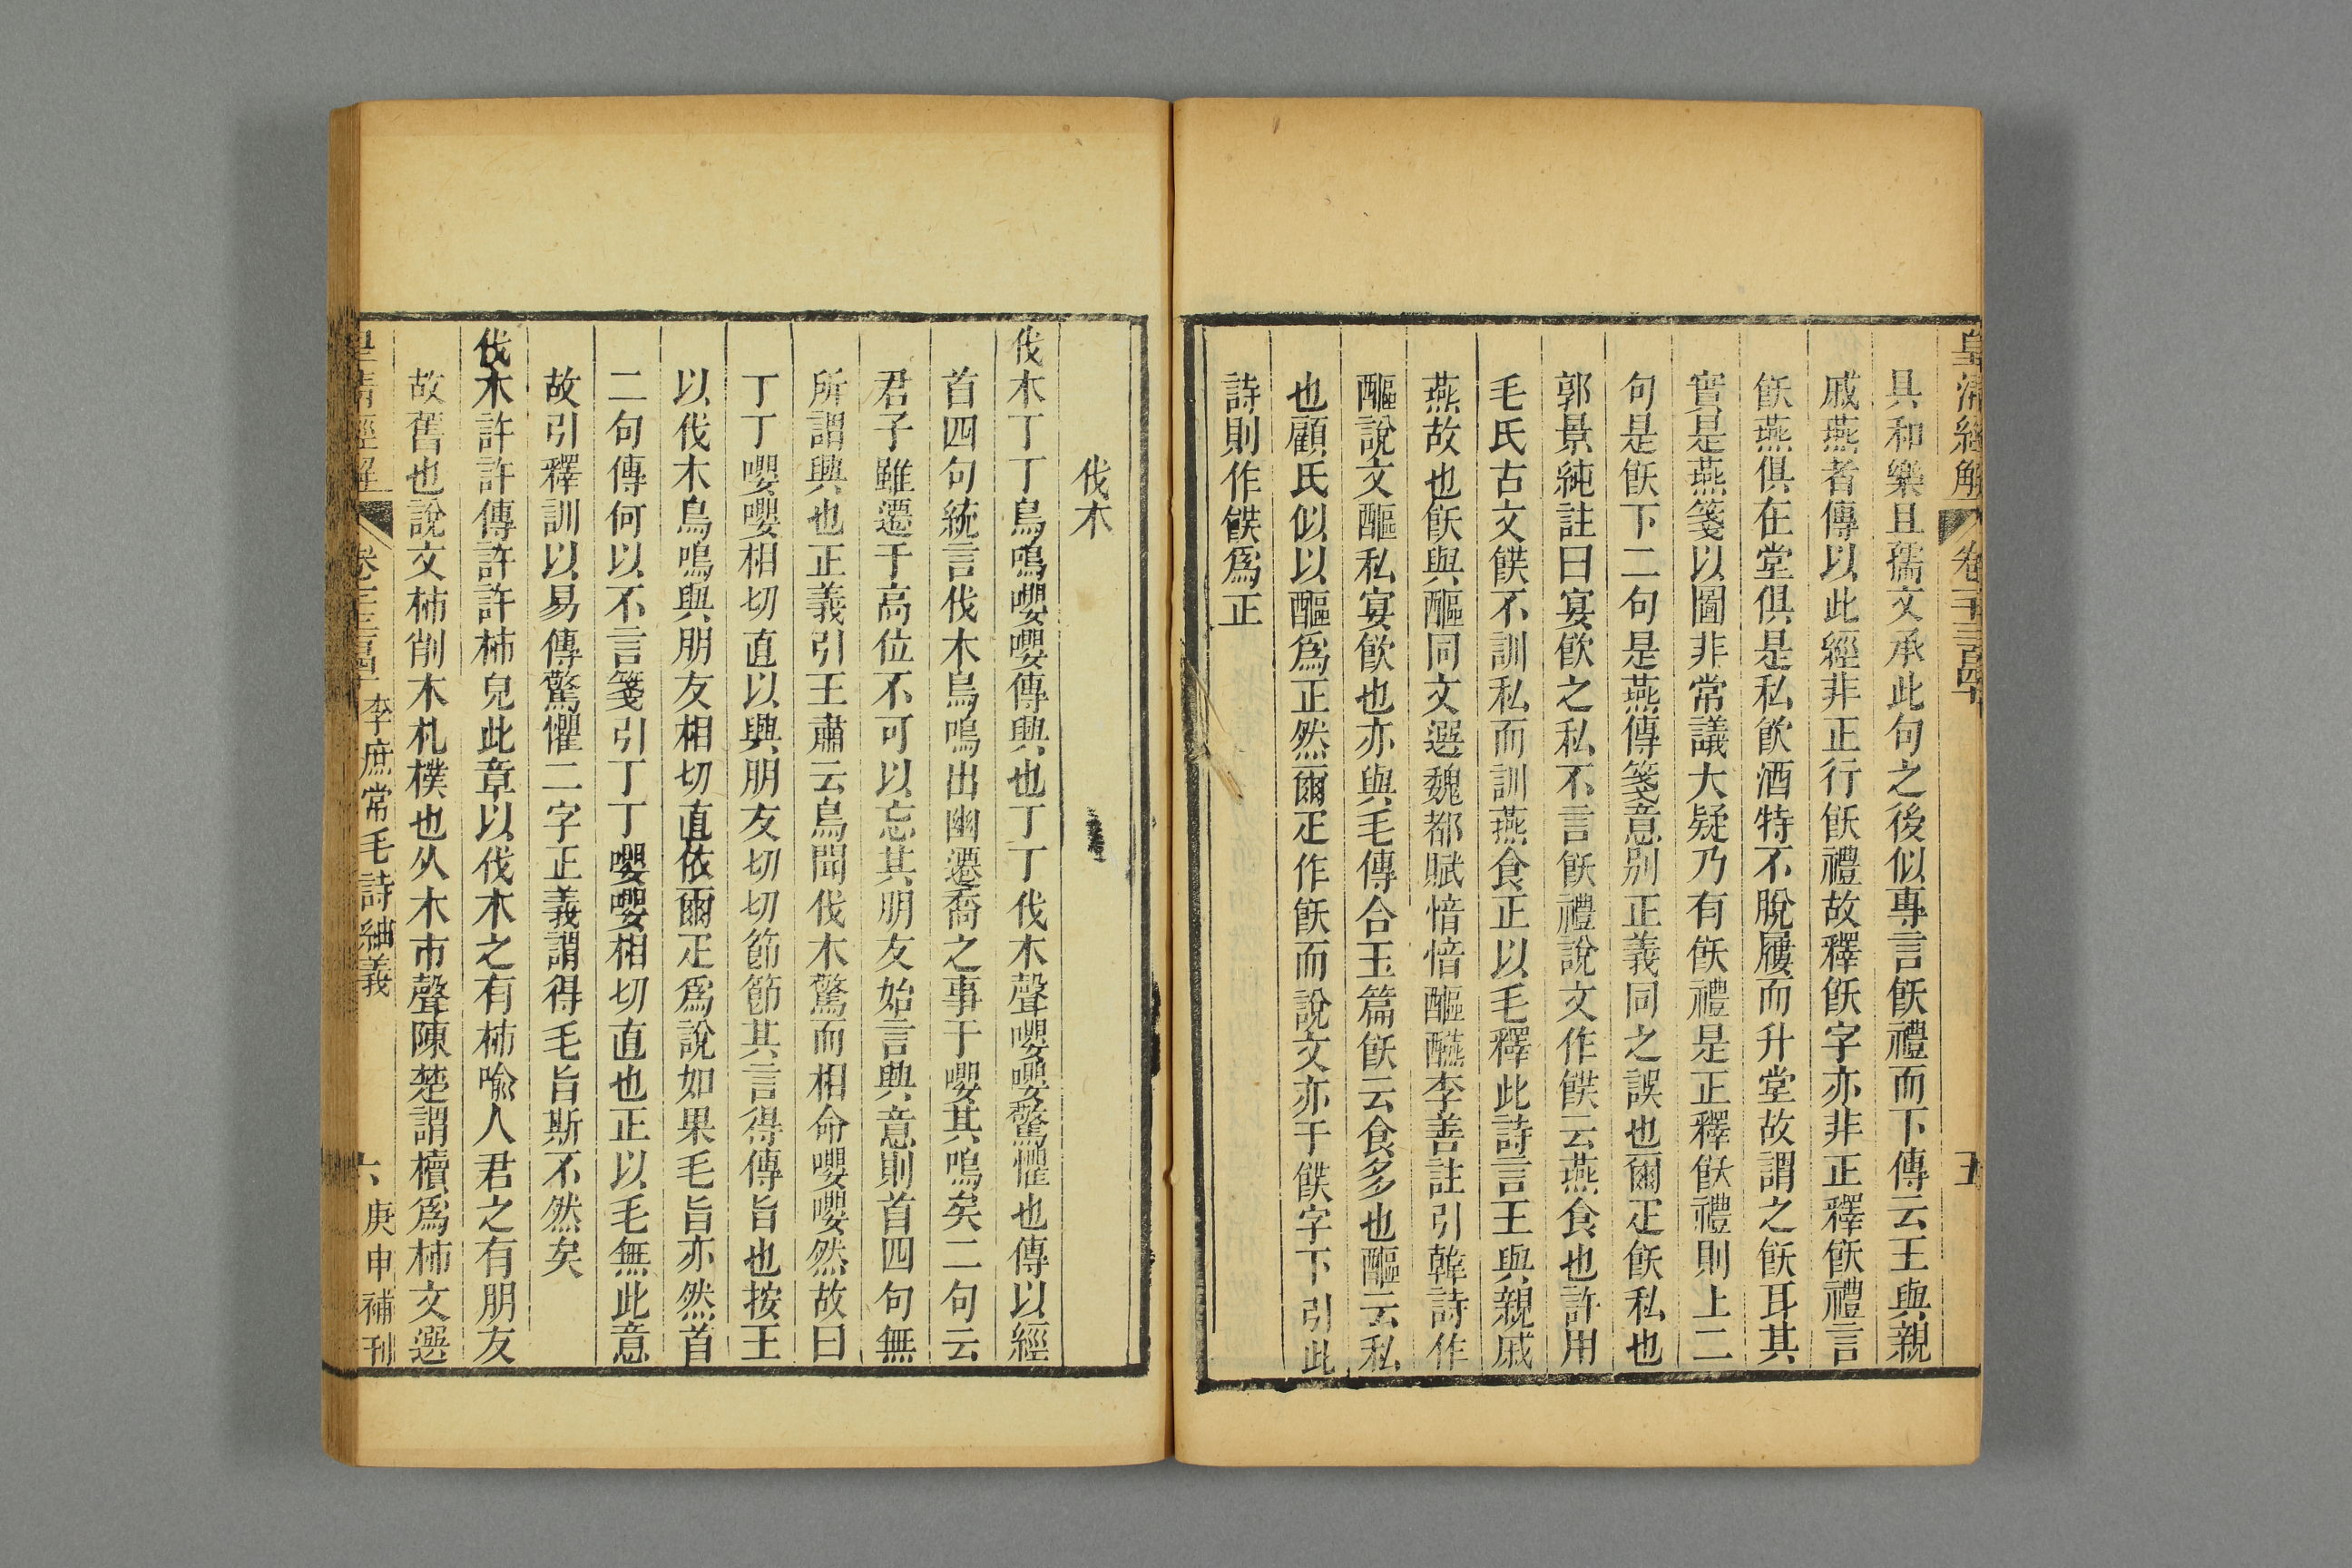 皇清經解 卷一千三百四十 五
具和樂且孺文承此句之後似專言飫禮而下傳云王與親
戚燕者傳以此經非正行飫禮故釋飫字亦非正釋飫禮言
飫燕俱在堂俱是私飲酒特不脫屨而升堂故謂之飫耳其
實是燕箋以圖非常議大疑乃有飫禮是正釋飫禮則上二
句是飫下二句是燕傳箋意別正義同之誤也爾疋飫私也
郭景純註曰宴飲之私不言飫禮說文作䬴云燕食也許用
毛氏古文䬴不訓私而訓燕食正以毛釋此詩言王與親戚
燕故也飫與醧同文選魏都賦愔愔醧讌李善註引韓詩作
醧說文醧私宴飲也亦與毛傳合玉篇飫云食多也醧云私
也顧氏似以醧爲正然爾疋作飫而說文亦于䬴字下引此
詩則作䬴爲正
伐木
伐木丁丁鳥鳴嚶嚶傳興也丁丁伐木聲嚶嚶驚懼也傳以經
首四句統言伐木鳥鳴出幽遷喬之事于嚶其鳴矣二句云
君子雖遷于高位不可以忘其朋友始言興意則首四句無
所謂興也正義引王肅云鳥聞伐木驚而相命嚶嚶然故曰
丁丁嚶嚶相切直以興朋友切切節節其言得傳旨也按王
以伐木鳥鳴興朋友相切直依爾疋爲說如果毛旨亦然首
二句傳何以不言箋引丁丁嚶嚶相切直也正以毛無此意
故引釋訓以易傳驚懼二字正義謂得毛旨斯不然矣
伐木許許傳許許柹皃此章以伐木之有柹喻人君之有朋友
故舊也說文柹削木札樸也从木市聲陳楚謂櫝爲柹文選
皇清經解 卷一千三百四十 李庶常毛詩紬義 六 庚申補刊